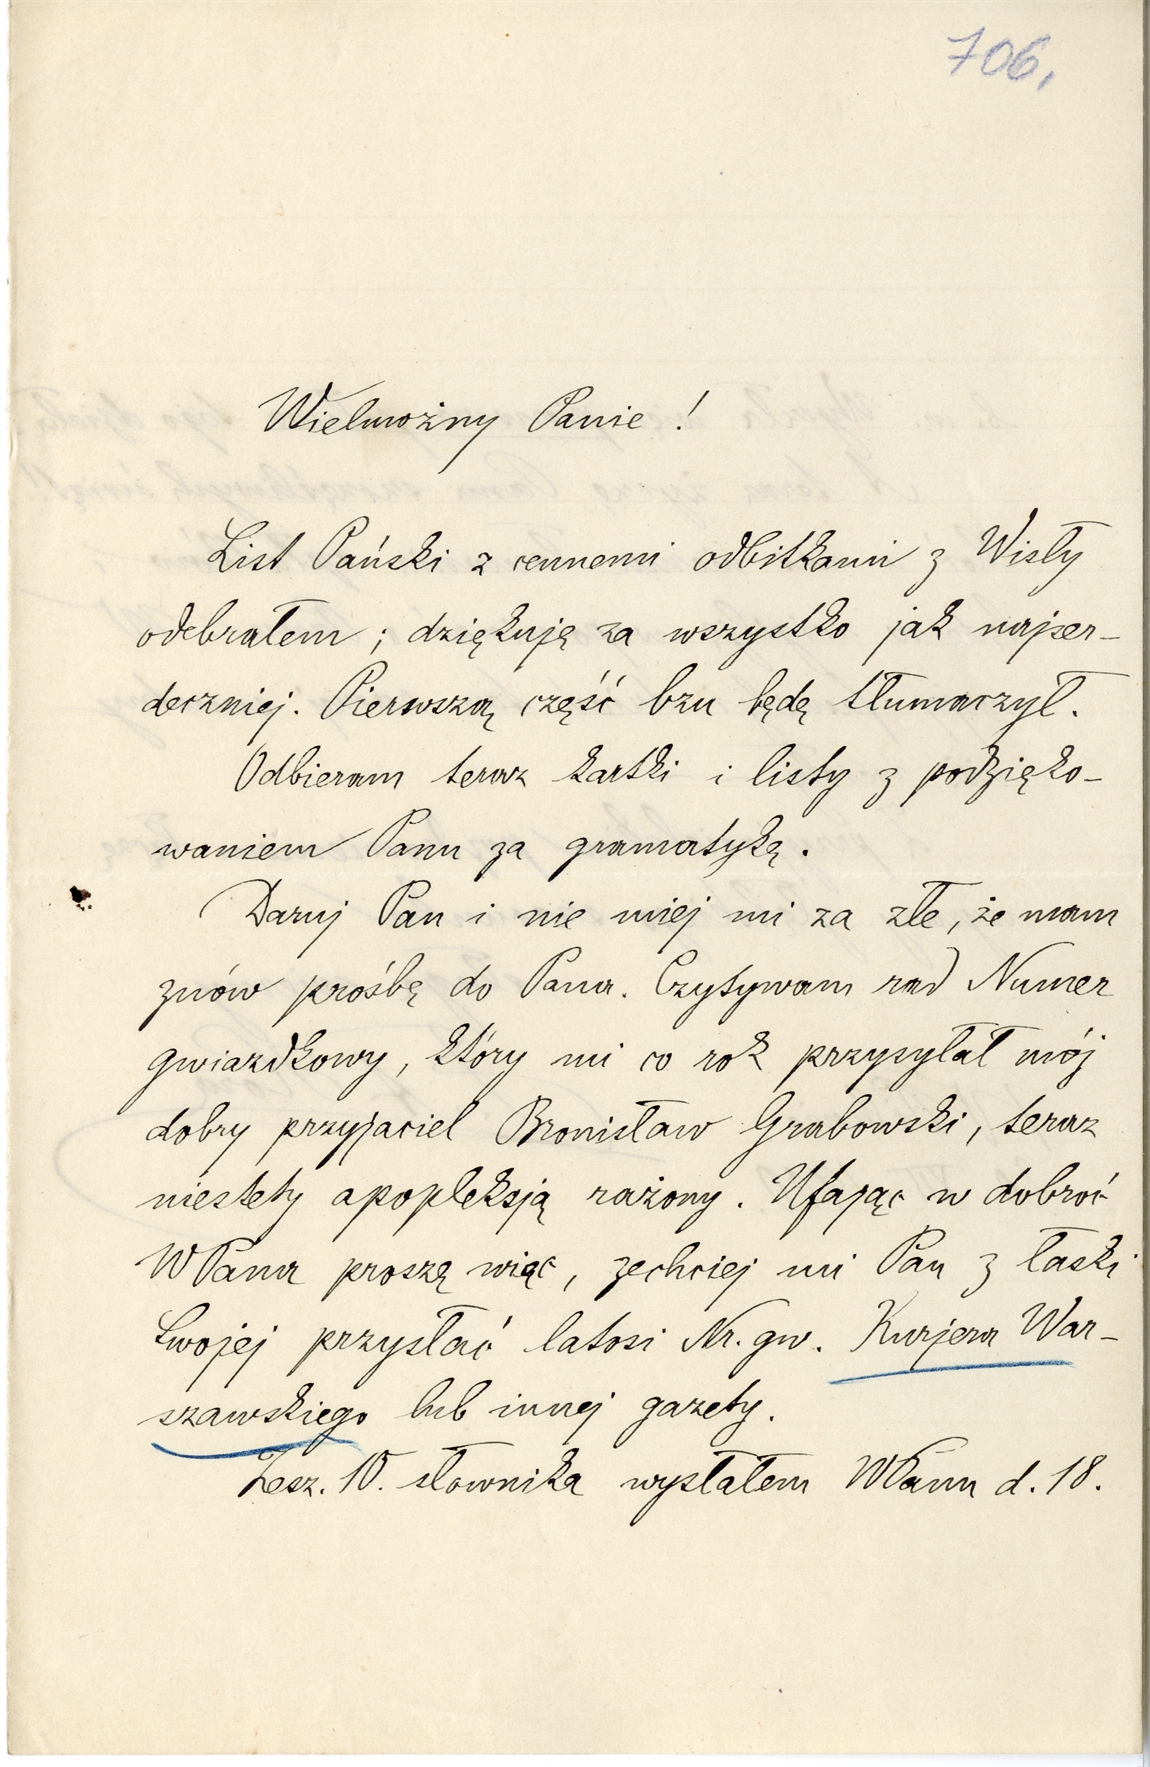 706,
Wielmożny Panie!
List Pański z cennemi odbitkami z Wisły
odebrałem; dziękuję za wszystko jak najser-
deczniej. Pierwszą część bzu będę tłumaczył.
Odbieram teraz kartki i listy z podzięko-
waniem Panu za gramatykę.
Daruj Pan i nie miej mi za złe, że mam
znów prośbę do Pana. Czytywam rad Numer
gwiazdkowy, który mi co rok przysyłał mój
dobry przyjaciel Bronisław Grabowski, teraz
niestety apopleksją rażony. Ufając w dobroć
WPana proszę więc, zechciej mi Pan z łaski
Swojej przysłać latosi Nr. gw. Kurjera War-
szawskiego lub innej gazety.
Zesz. 10. słownika wysłałem WPanu d. 18.